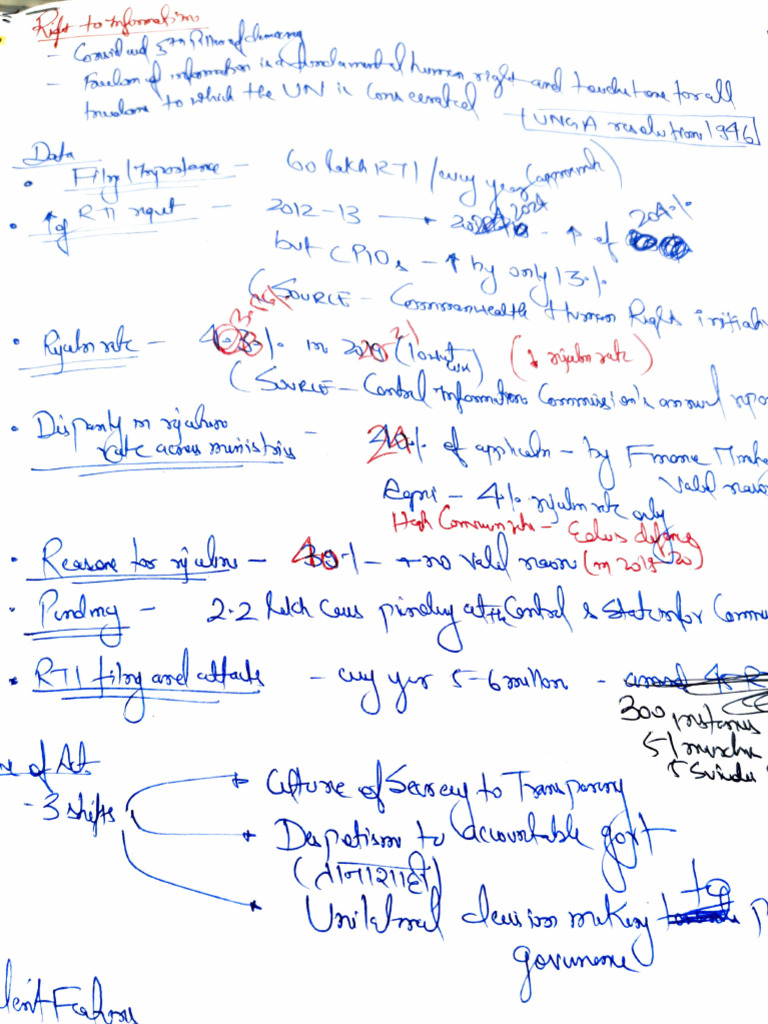 Right to Information
- Considered 5th Pillar of democracy
- Freedom of information is a fundamental human right and touchstone for all
freedoms to which the UN is consecrated - UNGA resolution 1946
Data
• Filing/Importance - 60 lakh RTI/every year (approximate)
• ↑ of RTI request - 2012-13 → 2021 - ↑ of 204%
but CPIOs - ↑ by only 13%
(SOURCE - Commonwealth Human Rights initiati
• Rejection rate - 4. % in 20 21 (lowest ever) (↓ rejection rate)
(SOURCE - Central Information Commission's annual repo
• Disparity in rejection
rate across ministries - % of application - by Finance Minis
Valid reason
- 4% rejection rate only
High Community - defence
• Reasons for rejections - 40% - no valid reason (in 2019-20)
• Pending - 2.2 lakh cases pending at the Central & State infor Commi
• RTI filing and attacks - every year 5-6 million -
300 instances
51 murder
5 Suicide
e of Act.
- 3 shifts
→ Culture of Secrecy to Transparency
→ Despotism to accountable govt
(तानाशाही)
→ Unilateral decision making to p
governance
lient Features